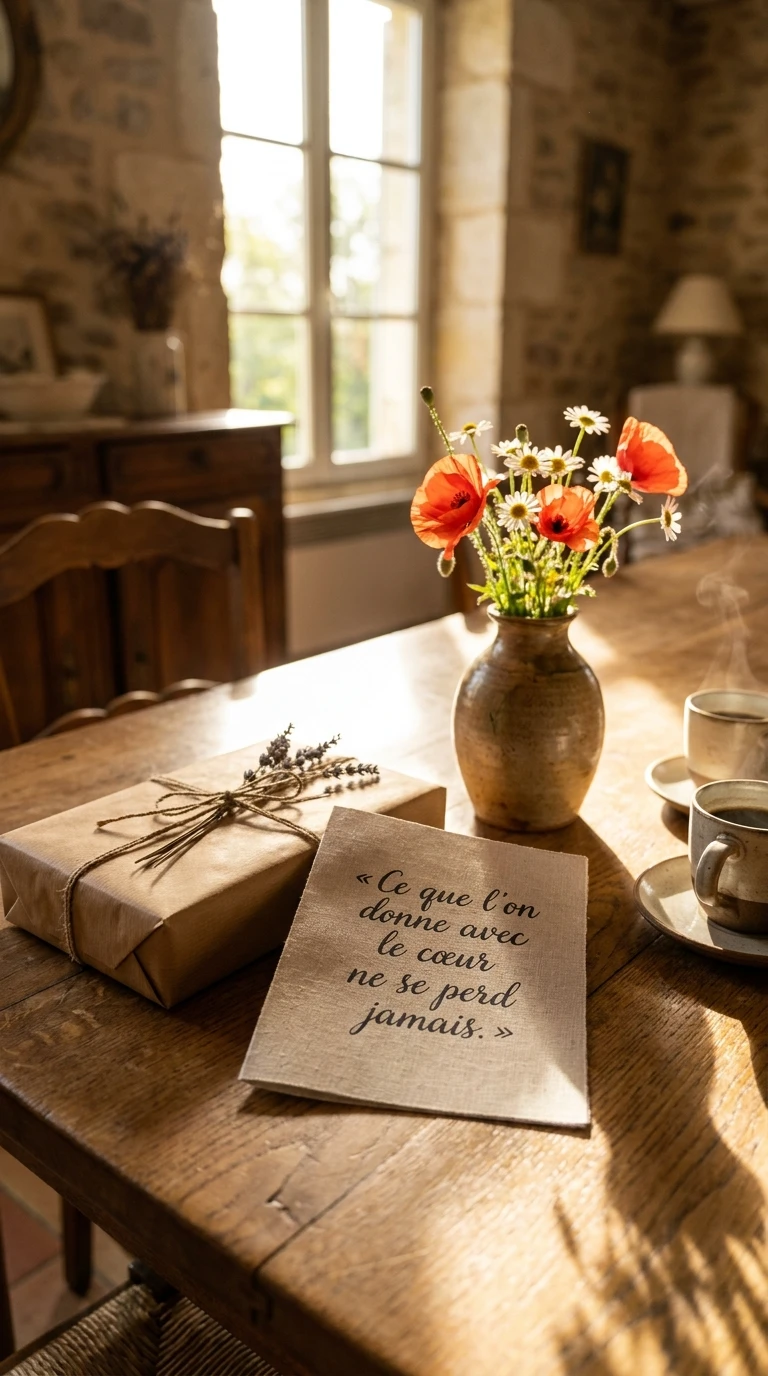 « Ce que l'on
donne avec
le cœur
ne se perd
jamais. »